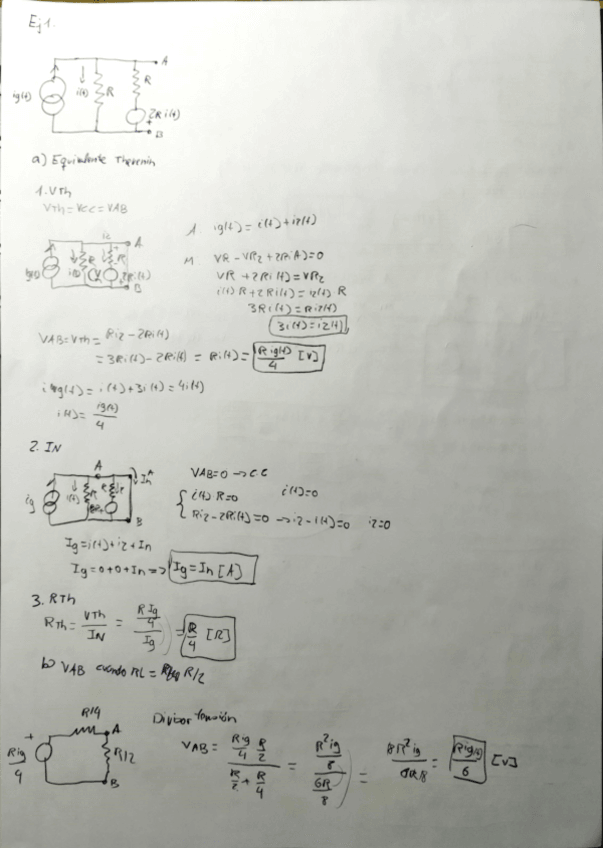 Ej 1.
A
ig(t) i(t) R R
2Ri(t)
B
a) Equivalente Thevenin
1. VTh
VTh = Vcc = VAB
A. ig(t) = i(t) + i2(t)
M. VR - VR2 + 2Ri(t) = 0
VR + 2Ri(t) = VR2
i(t) R + 2Ri(t) = i2(t) R
3Ri(t) = Ri2(t)
3i(t) = i2(t)
i2 A
R R
i(t) 2Ri(t)
B
VAB = VTh = Ri2 - 2Ri(t)
= 3Ri(t) - 2Ri(t) = Ri(t) = R ig(t) / 4 [V]
ig(t) = i(t) + 3i(t) = 4i(t)
i(t) = ig(t) / 4
2. IN
A In
ig i(t) R R
B
VAB = 0 → C.C
i(t) R = 0 i(t) = 0
Ri2 - 2Ri(t) = 0 → i2 - i(t) = 0 i2 = 0
Ig = i(t) + i2 + In
Ig = 0 + 0 + In => Ig = In [A]
3. RTh
RTh = VTh / IN = (R Ig / 4) / Ig = R / 4 [Ω]
b) VAB cuando RL = R/2
R/4 A
+
Rig / 4 R/2
B
Divisor tensión
VAB = (Rig / 4 R / 2) / (R / 2 + R / 4) = (R² ig / 8) / (6R / 8) = 8R² ig / 6R 8 = Rig(t) / 6 [V]